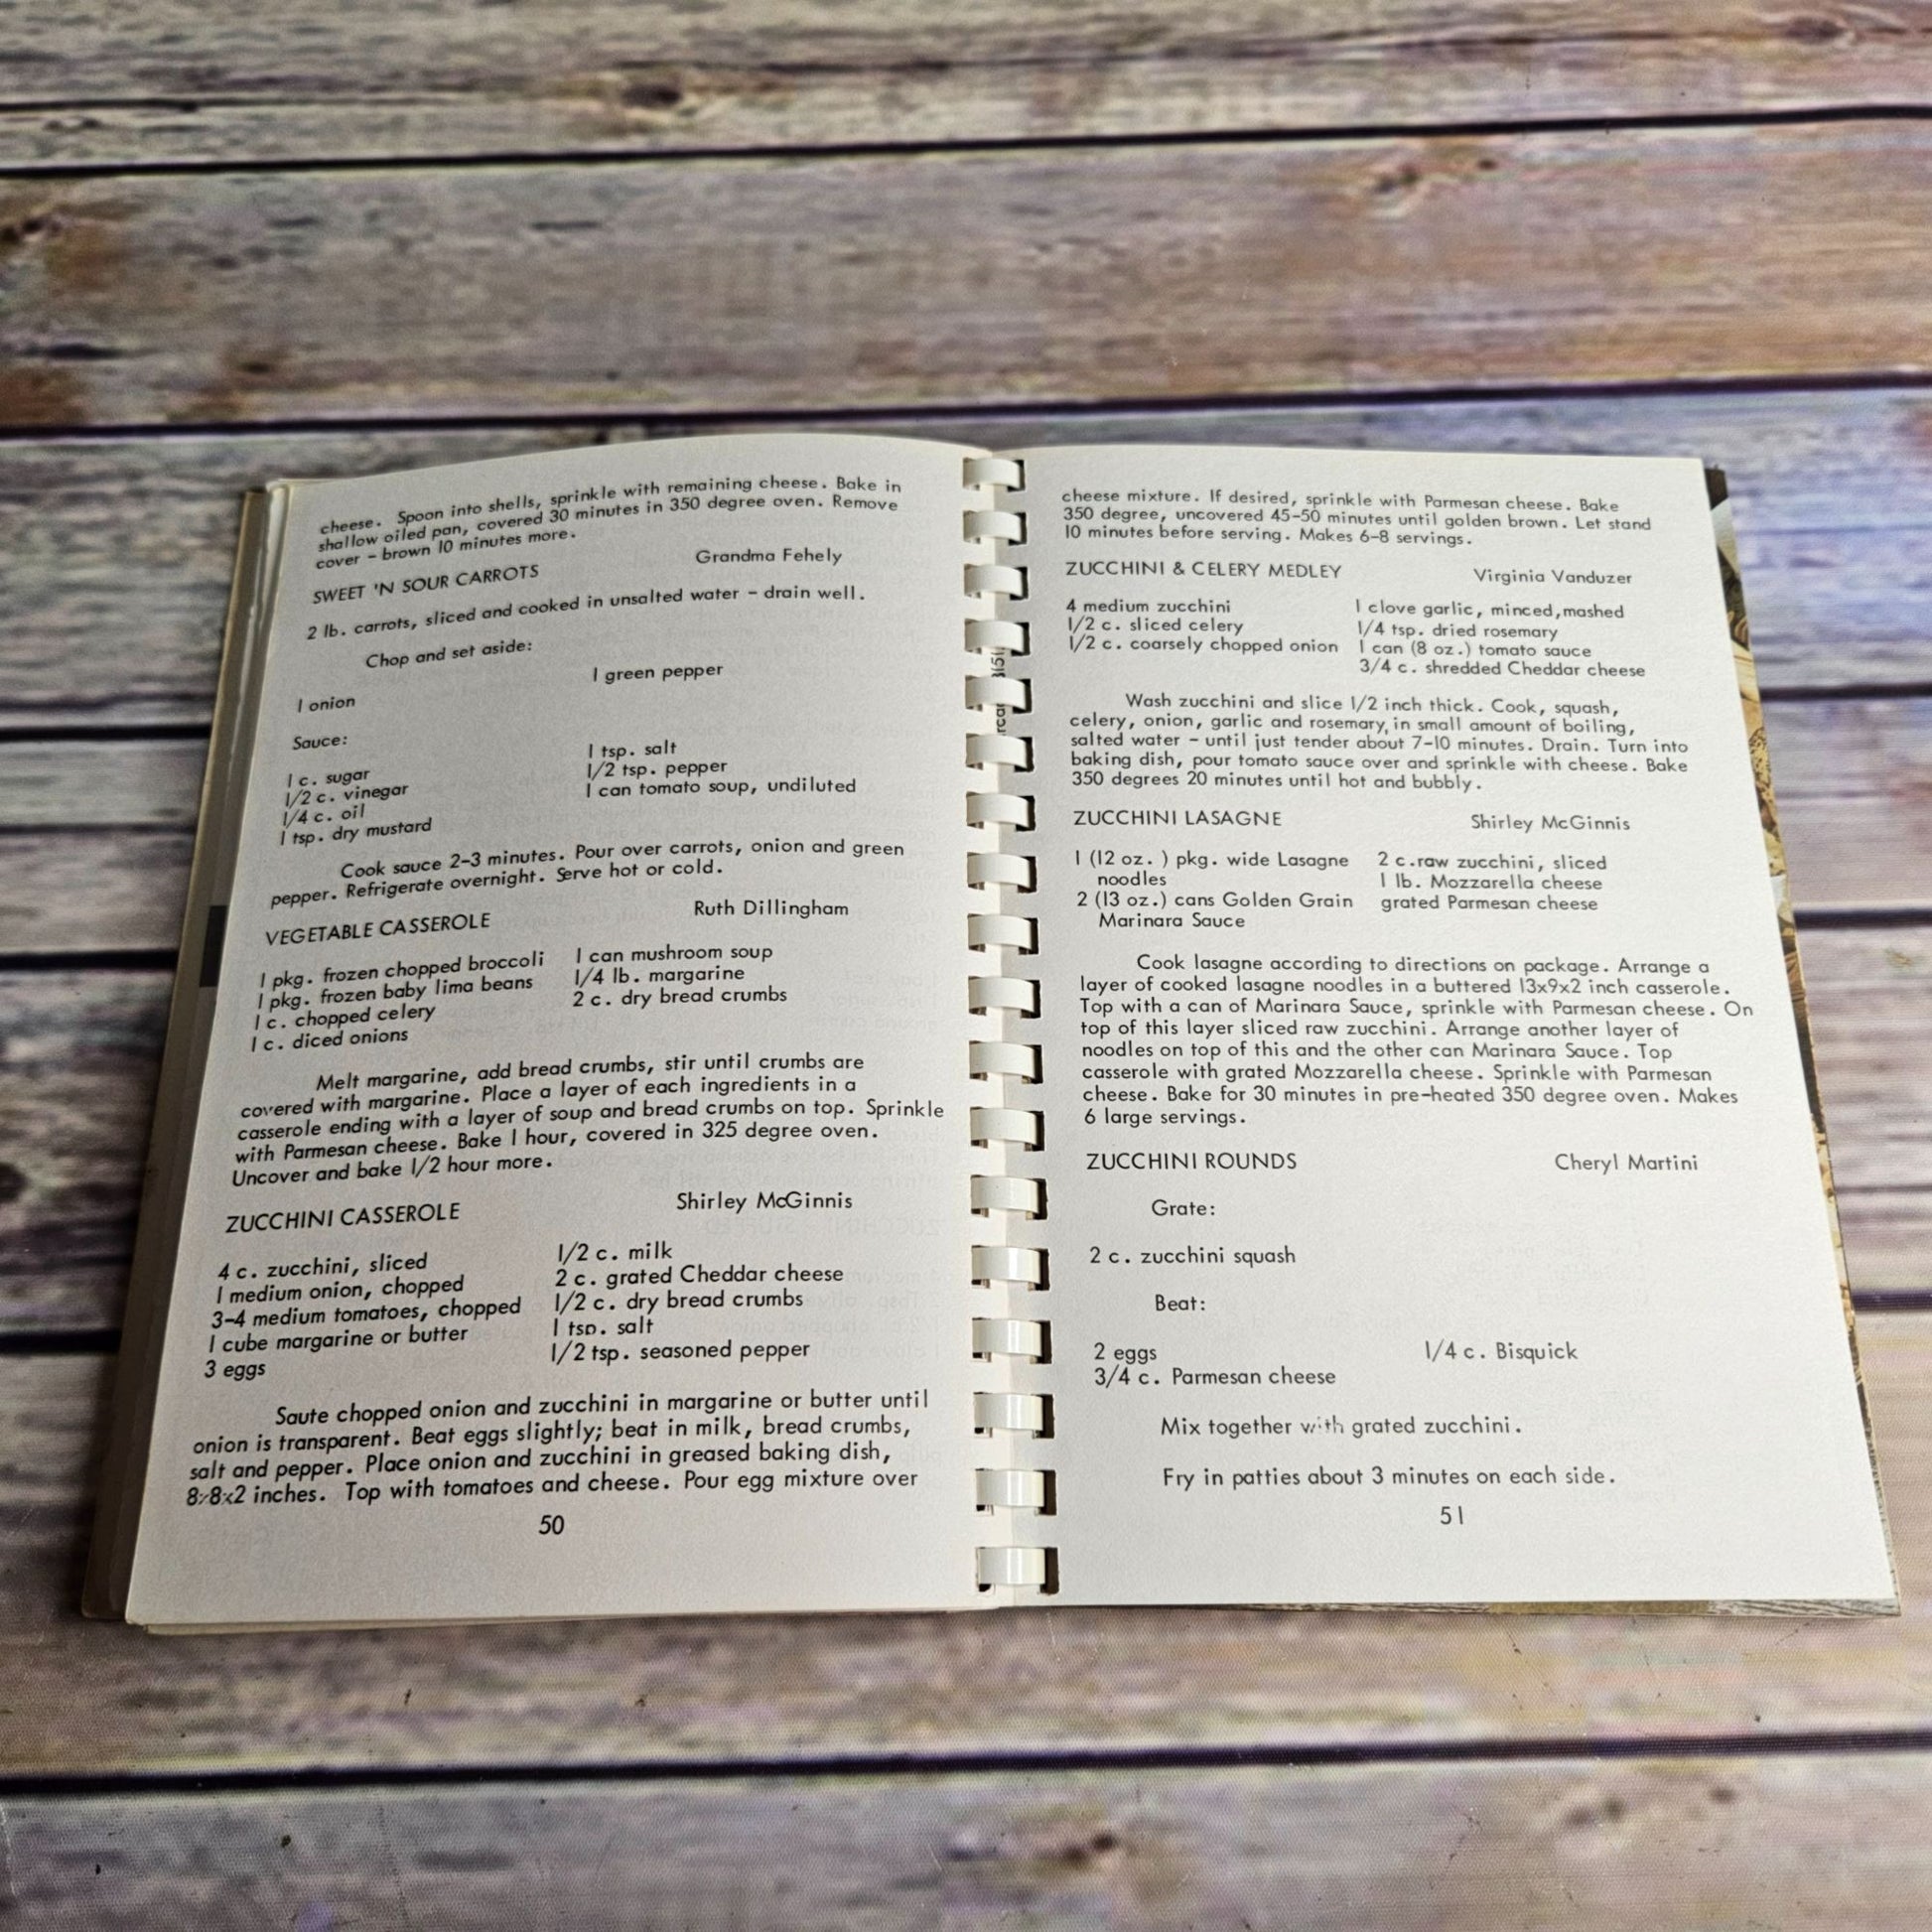 cheese. Spoon into shells, sprinkle with remaining cheese. Bake in
shallow oiled pan, covered 30 minutes in 350 degree oven. Remove
cover - brown 10 minutes more.
Grandma Fehely
SWEET 'N SOUR CARROTS
2 lb. carrots, sliced and cooked in unsalted water - drain well.
Chop and set aside:
1 onion 1 green pepper
Sauce:
1 c. sugar 1 tsp. salt
1/2 c. vinegar 1/2 tsp. pepper
1/4 c. oil 1 can tomato soup, undiluted
1 tsp. dry mustard
Cook sauce 2-3 minutes. Pour over carrots, onion and green
pepper. Refrigerate overnight. Serve hot or cold.
VEGETABLE CASSEROLE Ruth Dillingham
1 pkg. frozen chopped broccoli 1 can mushroom soup
1 pkg. frozen baby lima beans 1/4 lb. margarine
1 c. chopped celery 2 c. dry bread crumbs
1 c. diced onions
Melt margarine, add bread crumbs, stir until crumbs are
covered with margarine. Place a layer of each ingredients in a
casserole ending with a layer of soup and bread crumbs on top. Sprinkle
with Parmesan cheese. Bake 1 hour, covered in 325 degree oven.
Uncover and bake 1/2 hour more.
ZUCCHINI CASSEROLE Shirley McGinnis
4 c. zucchini, sliced 1/2 c. milk
1 medium onion, chopped 2 c. grated Cheddar cheese
3-4 medium tomatoes, chopped 1/2 c. dry bread crumbs
1 cube margarine or butter 1 tsp. salt
3 eggs 1/2 tsp. seasoned pepper
Saute chopped onion and zucchini in margarine or butter until
onion is transparent. Beat eggs slightly; beat in milk, bread crumbs,
salt and pepper. Place onion and zucchini in greased baking dish,
8x8x2 inches. Top with tomatoes and cheese. Pour egg mixture over
50
cheese mixture. If desired, sprinkle with Parmesan cheese. Bake
350 degree, uncovered 45-50 minutes until golden brown. Let stand
10 minutes before serving. Makes 6-8 servings.
ZUCCHINI & CELERY MEDLEY Virginia Vanduzer
4 medium zucchini 1 clove garlic, minced,mashed
1/2 c. sliced celery 1/4 tsp. dried rosemary
1/2 c. coarsely chopped onion 1 can (8 oz.) tomato sauce
3/4 c. shredded Cheddar cheese
Wash zucchini and slice 1/2 inch thick. Cook, squash,
celery, onion, garlic and rosemary, in small amount of boiling,
salted water - until just tender about 7-10 minutes. Drain. Turn into
baking dish, pour tomato sauce over and sprinkle with cheese. Bake
350 degrees 20 minutes until hot and bubbly.
ZUCCHINI LASAGNE Shirley McGinnis
1 (12 oz. ) pkg. wide Lasagne 2 c.raw zucchini, sliced
noodles 1 lb. Mozzarella cheese
2 (13 oz.) cans Golden Grain grated Parmesan cheese
Marinara Sauce
Cook lasagne according to directions on package. Arrange a
layer of cooked lasagne noodles in a buttered 13x9x2 inch casserole.
Top with a can of Marinara Sauce, sprinkle with Parmesan cheese. On
top of this layer sliced raw zucchini. Arrange another layer of
noodles on top of this and the other can Marinara Sauce. Top
casserole with grated Mozzarella cheese. Sprinkle with Parmesan
cheese. Bake for 30 minutes in pre-heated 350 degree oven. Makes
6 large servings.
ZUCCHINI ROUNDS Cheryl Martini
Grate:
2 c. zucchini squash
Beat:
2 eggs 1/4 c. Bisquick
3/4 c. Parmesan cheese
Mix together with grated zucchini.
Fry in patties about 3 minutes on each side.
51